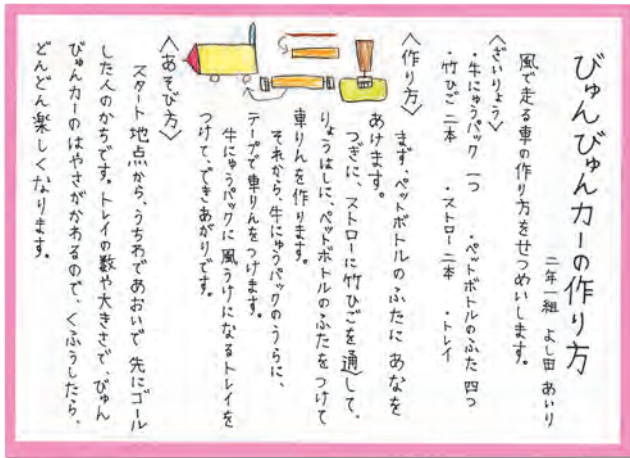 びゅんびゅんカーの作り方
二年一組 よし田 あいり
風で走る車の作り方をせつめいします。
〈ざいりょう〉
・牛にゅうパック 一つ ・ペットボトルのふた 四つ
・竹ひご 二本 ・ストロー 二本 ・トレイ
〈作り方〉
まず、ペットボトルのふたに あなを
あけます。
つぎに、ストローに竹ひごを通して、
りょうはしに、ペットボトルのふたをつけて
車りんを作ります。
それから、牛にゅうパックのうらに、
テープで車りんをつけます。
牛にゅうパックに風うけになるトレイを
つけて、できあがりです。
〈あそび方〉
スタート地点から、うちわであおいで 先にゴール
した人のかちです。トレイの数や大きさで、びゅん
びゅんカーのはやさがかわるので、くふうしたら、
どんどん楽しくなります。